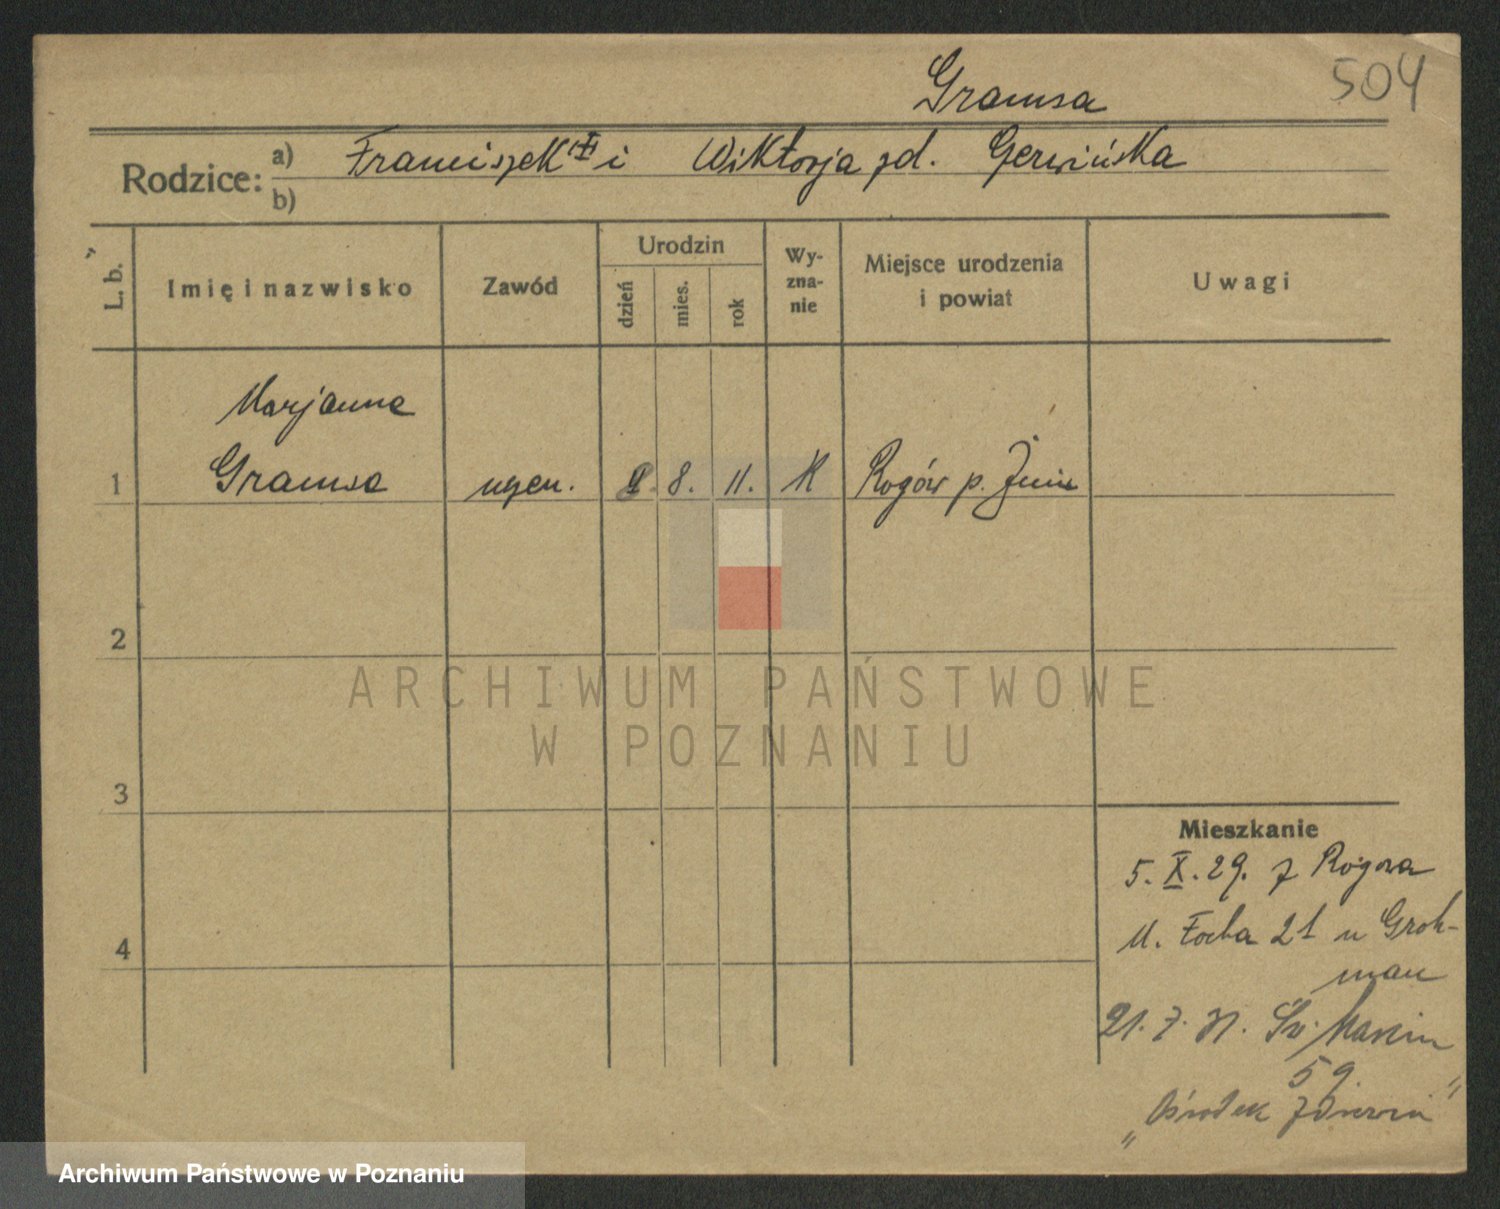 504
Gramsa
Rodzice: a) Franciszek i Wiktorja zd. Gerwińska
b)
L. b.
Imię i nazwisko
Zawód
Urodzin
dzień
mies.
rok
Wy-
zna-
nie
Miejsce urodzenia
i powiat
Uwagi
Marjanna
1 Gramsa uczen. 8. 11. K Rogów p. Żnin
2
3
4
ARCHIWUM PAŃSTWOWE
W POZNANIU
Mieszkanie
5. X. 29. z Rogowa
Focha 21 u Groh-
man
21. 7. 31. Św. Marcin
59.
„Ośrodek Zdrowia"
Archiwum Państwowe w Poznaniu